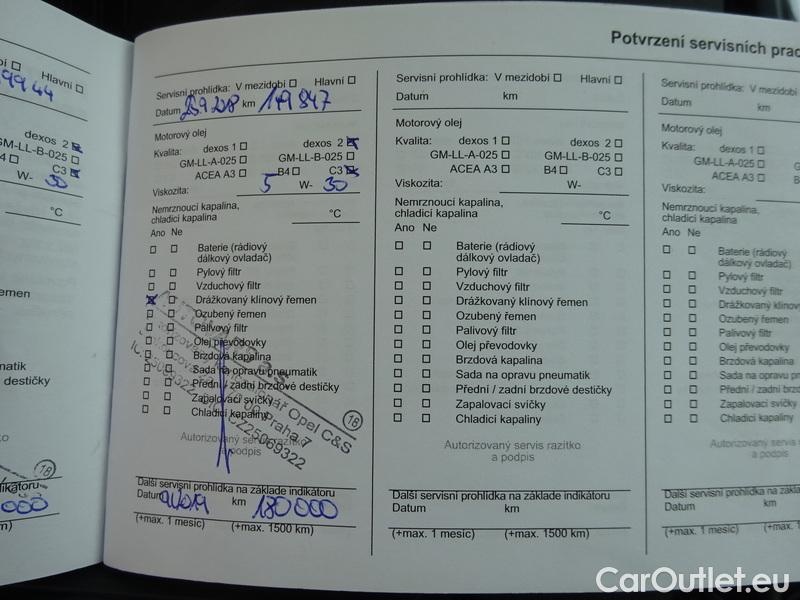 Potvrzení servisních prac
99944
Hlavní
dexos 2
GM-LL-B-025
B4 C3
W- 30
°C
emen
matik
destičky
18
000
Servisní prohlídka: V mezidobí Hlavní
Datum km 149 847
Motorový olej
Kvalita: dexos 1 dexos 2
GM-LL-A-025 GM-LL-B-025
ACEA A3 B4 C3
Viskozita: 5 W- 30
Nemrznoucí kapalina,
chladicí kapalina °C
Ano Ne
Baterie (rádiový
dálkový ovladač)
Pylový filtr
Vzduchový filtr
Drážkovaný klínový řemen
Ozubený řemen
Palivový filtr
Olej převodovky
Brzdová kapalina
Sada na opravu pneumatik
Přední / zadní brzdové destičky
Zapalovací svíčky
Chladicí kapaliny
Opel C&S
Praha 7
CZ25069322
18
Autorizovaný servis razítko
a podpis
Další servisní prohlídka na základe indikátoru
Datum km 180 000
(+max. 1 mesíc) (+max. 1500 km)
Servisní prohlídka: V mezidobí Hlavní
Datum km
Motorový olej
Kvalita: dexos 1 dexos 2
GM-LL-A-025 GM-LL-B-025
ACEA A3 B4 C3
Viskozita: W-
Nemrznoucí kapalina,
chladicí kapalina °C
Ano Ne
Baterie (rádiový
dálkový ovladač)
Pylový filtr
Vzduchový filtr
Drážkovaný klínový řemen
Ozubený řemen
Palivový filtr
Olej převodovky
Brzdová kapalina
Sada na opravu pneumatik
Přední / zadní brzdové destičky
Zapalovací svíčky
Chladicí kapaliny
Autorizovaný servis razítko
a podpis
Další servisní prohlídka na základe indikátoru
Datum km
(+max. 1 mesíc) (+max. 1500 km)
Servisní prohlídka: V mezidobí
Datum km
Motorový olej
Kvalita: dexos 1
GM-LL-A-025
ACEA A3
Viskozita:
Nemrznoucí kapalina,
chladicí kapalina
Ano Ne
Baterie (rádiový
dálkový ovladač)
Pylový filtr
Vzduchový filtr
Drážkovaný klínový
Ozubený řemen
Palivový filtr
Olej převodovky
Brzdová kapalina
Sada na opravu pne
Přední / zadní brzdo
Zapalovací svíčky
Chladicí kapaliny
Autorizovaný servis ra
a podpis
Další servisní prohlídka na zákla
Datum km
(+max. 1 mesíc) (+max.
CarOutlet.eu